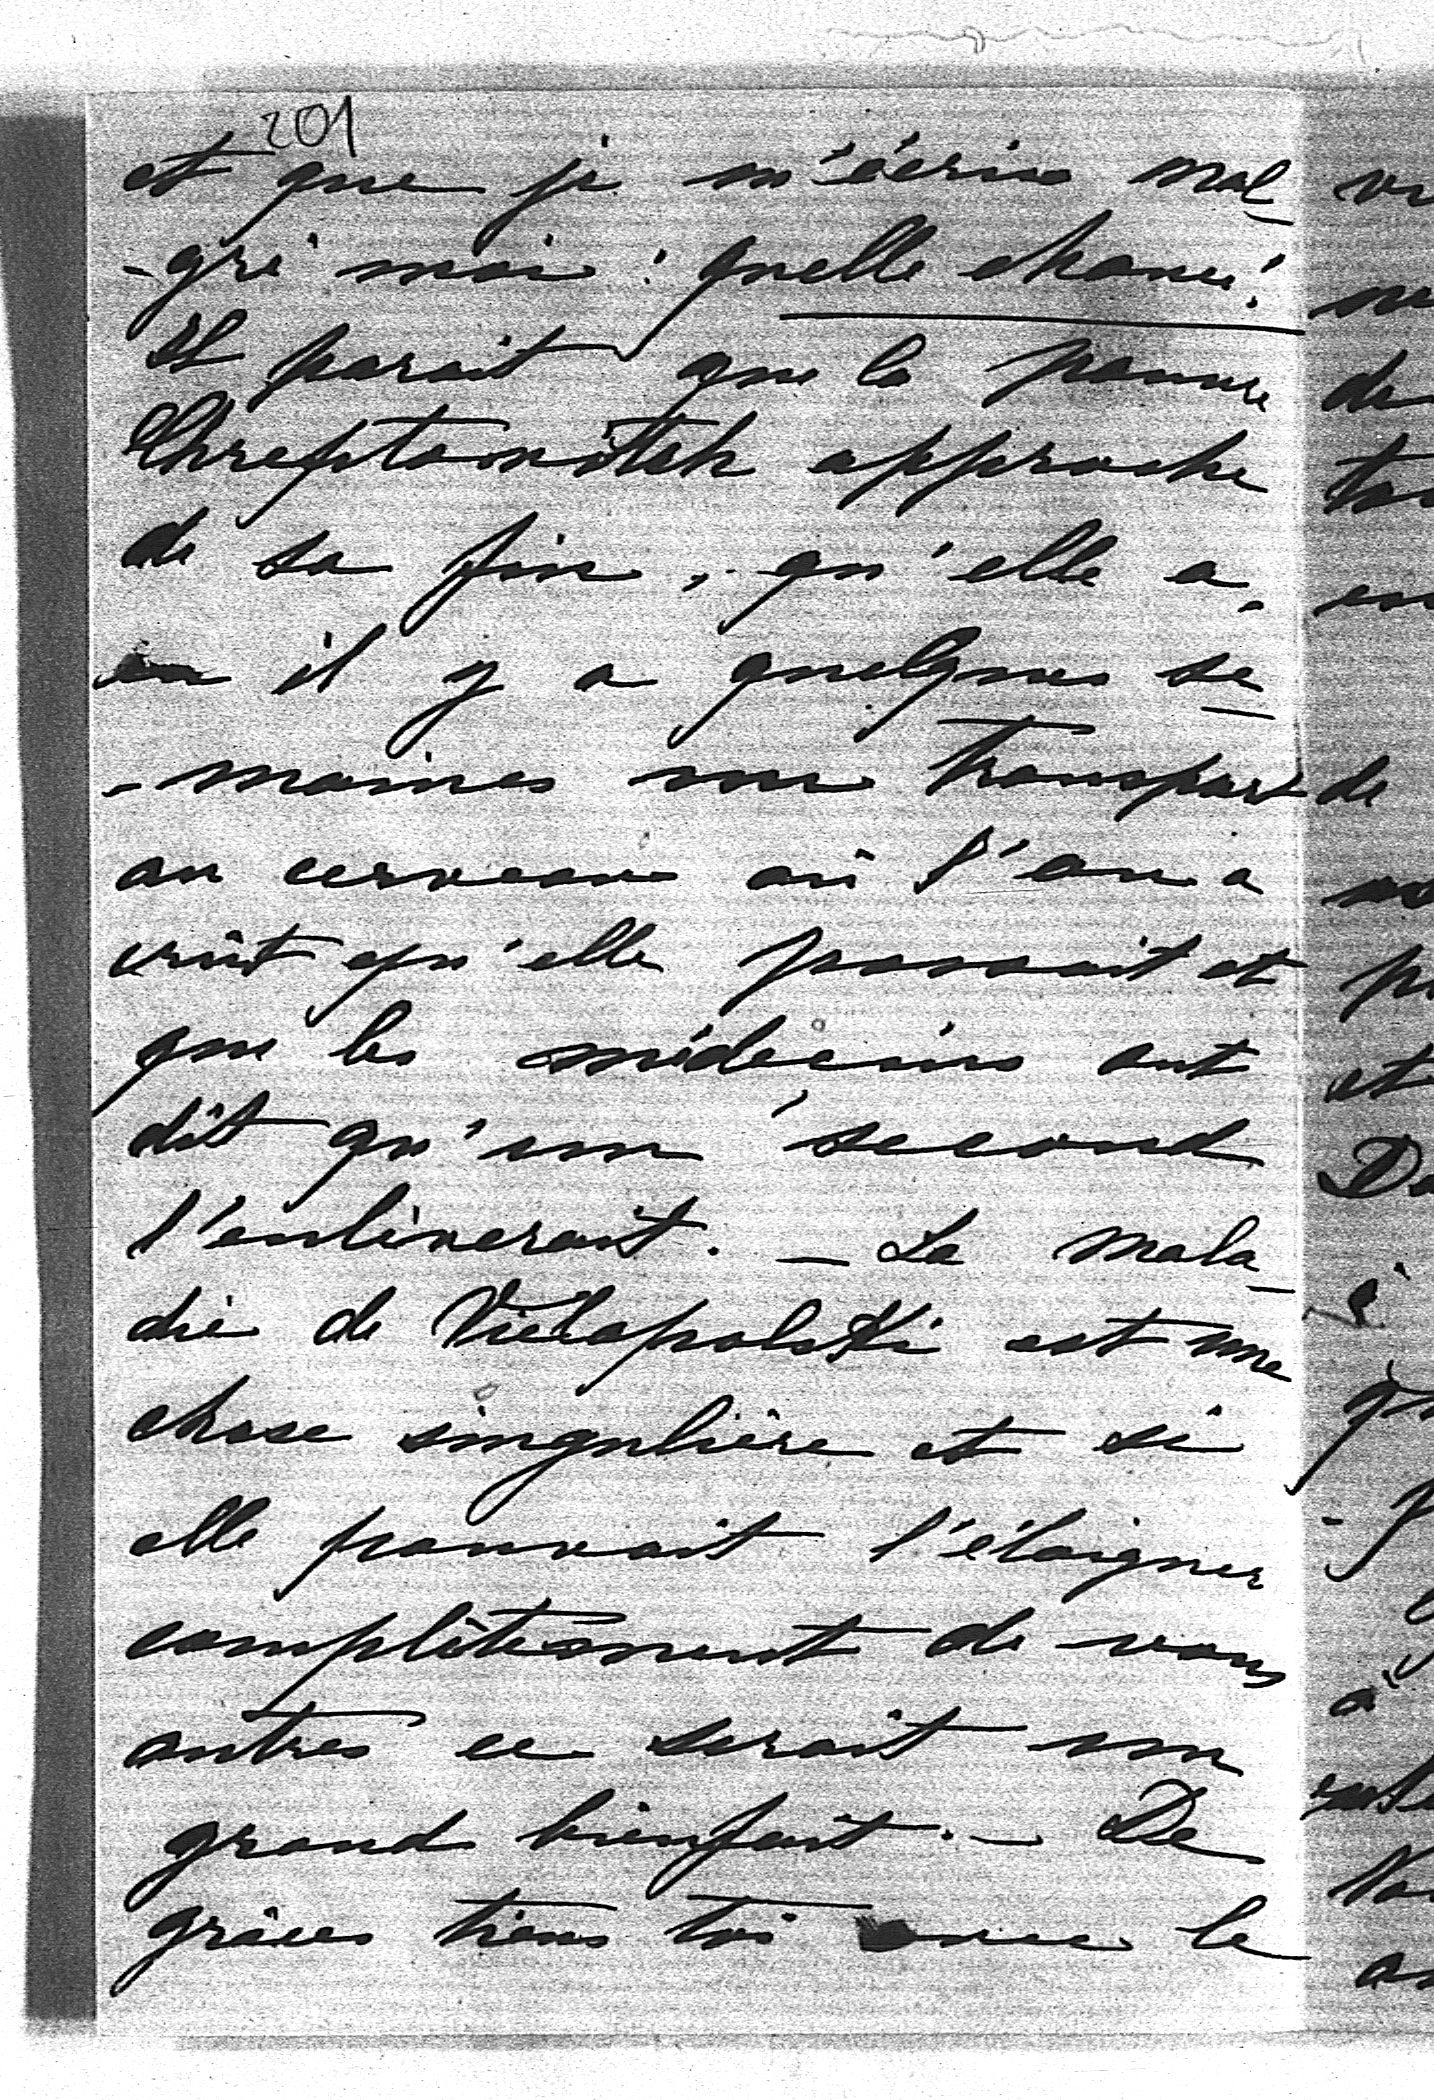 201
et que je m'écrie mal
-gré moi : quelle chance!
Il parait que la pauvre
Chreptowitch approche
de sa fin, qu'elle a
eu il y a quelques se
-maines un transport
au cerveau où l'on a
crût qu'elle passait et
que les médecins ont
dît qu'un second
l'enlèverait. – La mala
die de Vielopolski est une
chose singulière et si
elle pouvait l'éloigner
complètement de vous
autres ce serait un
grand bienfait. – De
grâces tiens toi avec le